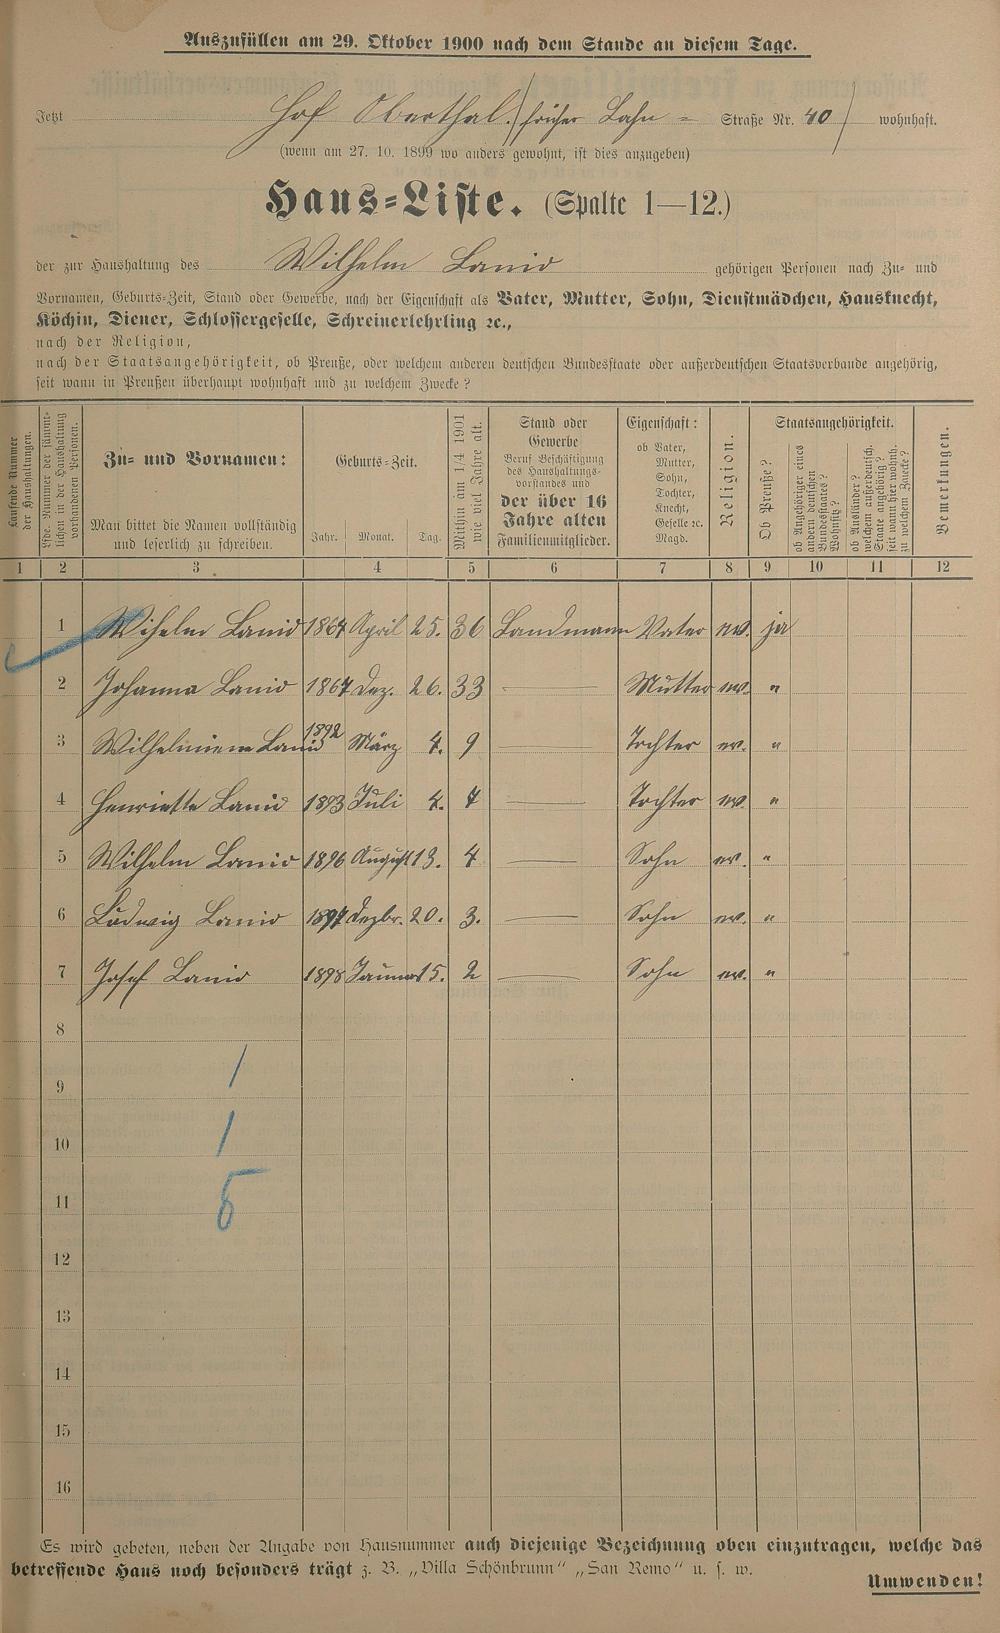 Auszufüllen am 29. Oktober 1900 nach dem Stande an diesem Tage.
Jetzt Hof Oberthal. (früher Lahn = Straße Nr. 40) wohnhaft.
(wenn am 27. 10. 1899 wo anders gewohnt, ist dies anzugeben)
Haus=Liste. (Spalte 1—12.)
der zur Haushaltung des Wilhelm Lanio gehörigen Personen nach Zu= und
Vornamen, Geburts=Zeit, Stand oder Gewerbe, nach der Eigenschaft als Vater, Mutter, Sohn, Dienstmädchen, Hausknecht,
Köchin, Diener, Schlossergeselle, Schreinerlehrling ꝛc.,
nach der Religion,
nach der Staatsangehörigkeit, ob Preuße, oder welchem anderen deutschen Bundesstaate oder außerdeutschen Staatsverbande angehörig,
seit wann in Preußen überhaupt wohnhaft und zu welchem Zwecke?
Laufende Nummer
der Haushaltungen.
Lfde. Nummer der sämmt-
lichen in der Haushaltung
vorhandenen Personen.
Zu= und Vornamen:
Man bittet die Namen vollständig
und leserlich zu schreiben.
Geburts=Zeit.
Jahr. Monat. Tag.
Mithin am 1/4 1901
wie viel Jahre alt.
Stand oder
Gewerbe
Beruf Beschäftigung
des Haushaltungs-
vorstandes und
der über 16
Jahre alten
Familienmitglieder.
Eigenschaft:
ob Vater,
Mutter,
Sohn,
Tochter,
Knecht,
Geselle ꝛc.
Magd.
Religion.
Staatsangehörigkeit.
Ob Preuße?
ob Angehöriger eines
andern deutschen
Bundesstaates?
Wohnsitz?
ob Ausländer?
welchem außerdeutsch.
Staate angehörig?
seit wann hier wohnh.
zu welchem Zwecke?
Bemerkungen.
1 2 3 4 5 6 7 8 9 10 11 12
1 Wihelm Lanio 1864 April 25. 36 Landmann Vater ev. ja
2 Johanna Lanio 1867 Dez. 26. 33 — Mutter ev. "
3 Wilhelmiene Lanio 1892 März 4. 9 — Tochter ev. "
4 Henriette Lanio 1893 Juli 4. 7 — Tochter ev. "
5 Wilhelm Lanio 1896 August 13. 4 — Sohn ev. "
6 Ludwig Lanio 1897 Dezbr. 20. 3. — Sohn ev. "
7 Josef Lanio 1898 Januar 15. 2 — Sohn ev. "
8
9 1
10 1
11 5
12
13
14
15
16
Es wird gebeten, neben der Angabe von Hausnummer auch diejenige Bezeichnung oben einzutragen, welche das
betreffende Haus noch besonders trägt z. B. „Villa Schönbrunn“ „San Remo“ u. s. w.
Umwenden!